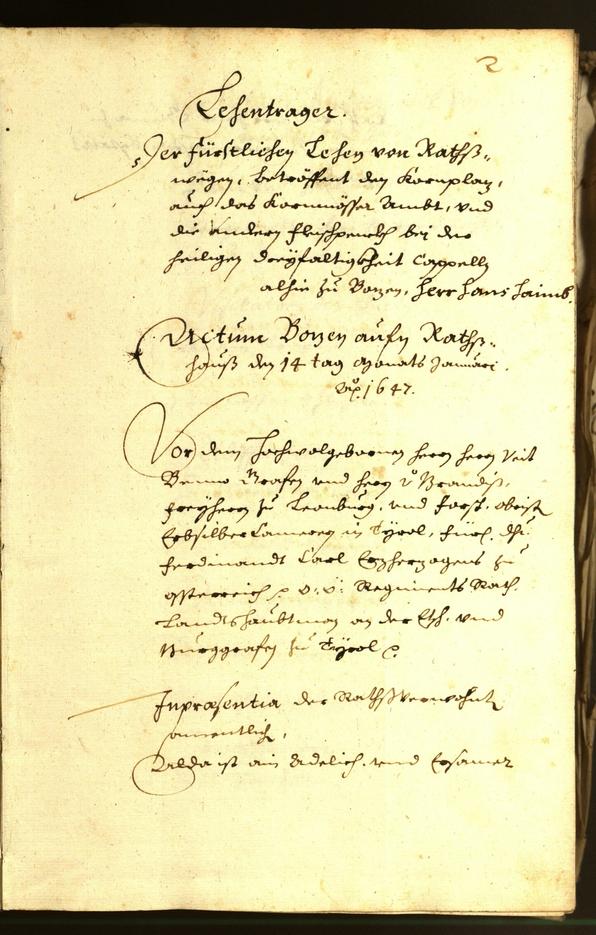 2
Lehentrager.
Der fürstlichen Lehen von Raths-
wegen, betröffent den Kornplaz,
auch das Kornmösser Ambt, vnd
die andern Fleischpenckh bei der
heiligen Dreyfaltigkheit Cappelln
alhie zu Bozen, Herr Hans Haimb.
Actum Bozen aufn Raths-
hauß den 14 tag Monats Januari
1647.
Vor dem Hochwolgebornen Herrn Herrn Veit
Benno Grafen vnd Herrn v Brandiß,
Freyherrn zu Leonburg, vnd Forst, obrist
Erbsilber Camerer in Tyrol, Fürl. Dhl.
Ferdinandt Carl Erzherzogens zu
Össterreich p. o: ö: Regiments Rath,
Landtshaubtman an der Etsch, vnd
Burggrafen zu Tyrol p.
In præsentia der Rathsverwohnt
amentlich,
Alda ist ain Adelich. vnd Ersamer